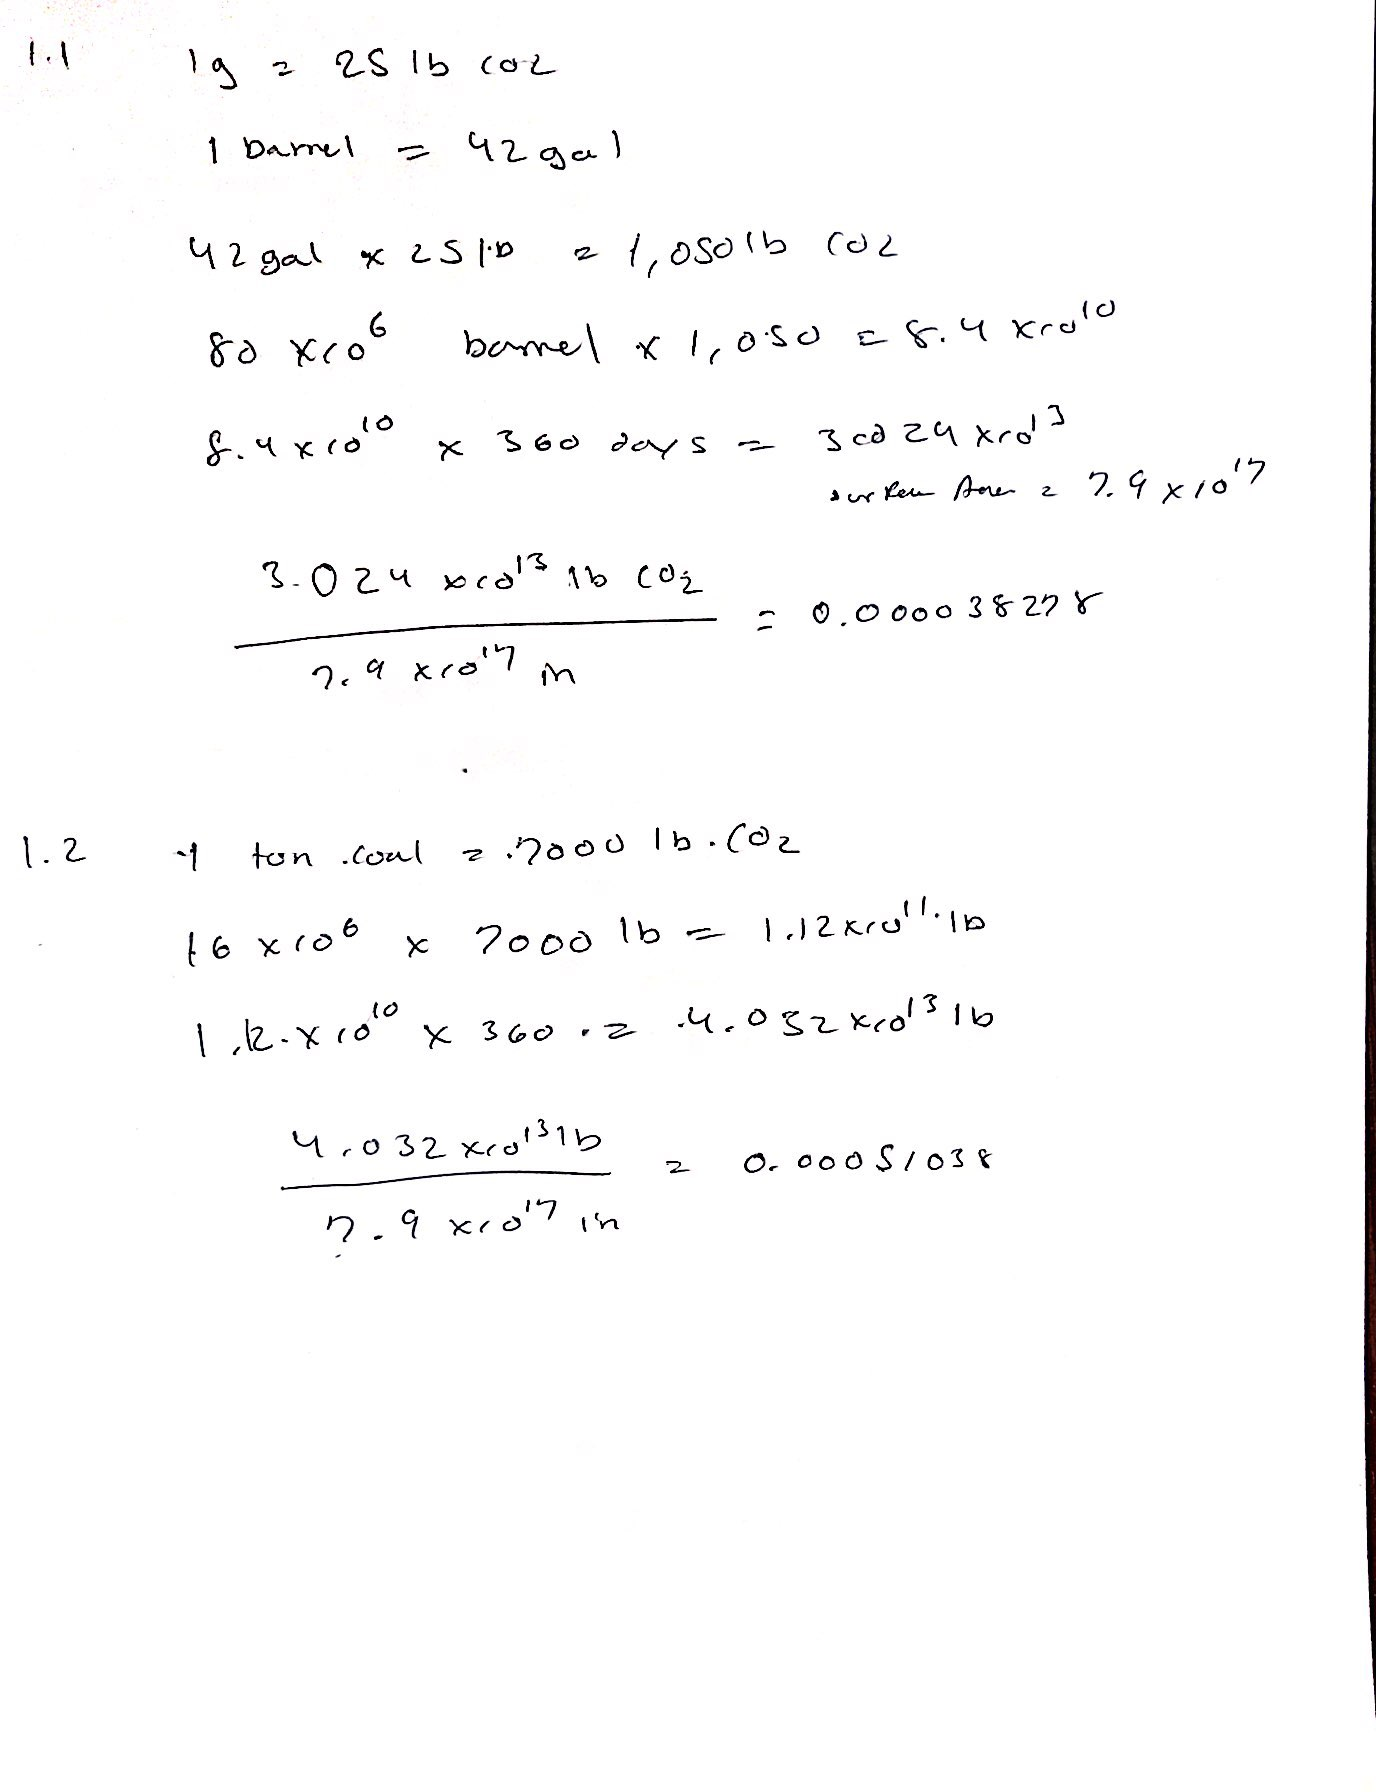 1.1 1g = 25 lb CO2
1 barrel = 42 gal
42 gal x 25 lb = 1,050 lb CO2
80 x10^6 barrel x 1,050 = 8.4 x10^10
8.4 x10^10 x 360 days = 3.024 x10^13
Area = 7.9 x10^17
3.024 x10^13 lb CO2
= 0.000038278
7.9 x10^17 in
1.2 1 ton coal = 7000 lb CO2
16 x10^6 x 7000 lb = 1.12x10^11 lb
1.12 x10^10 x 360 = 4.032 x10^13 lb
4.032 x10^13 lb
= 0.00051038
7.9 x10^17 in